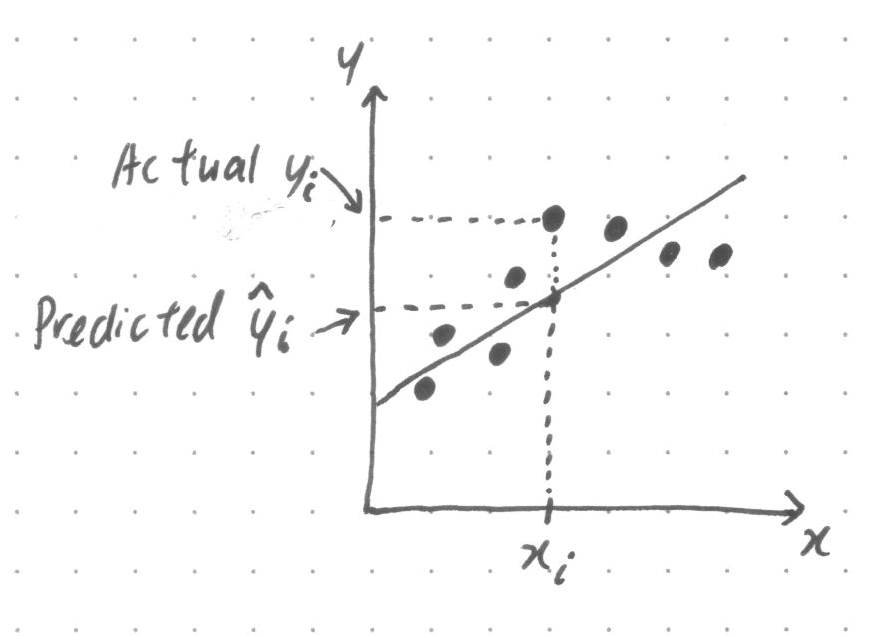 y
Actual yᵢ
Predicted ŷᵢ
xᵢ
x